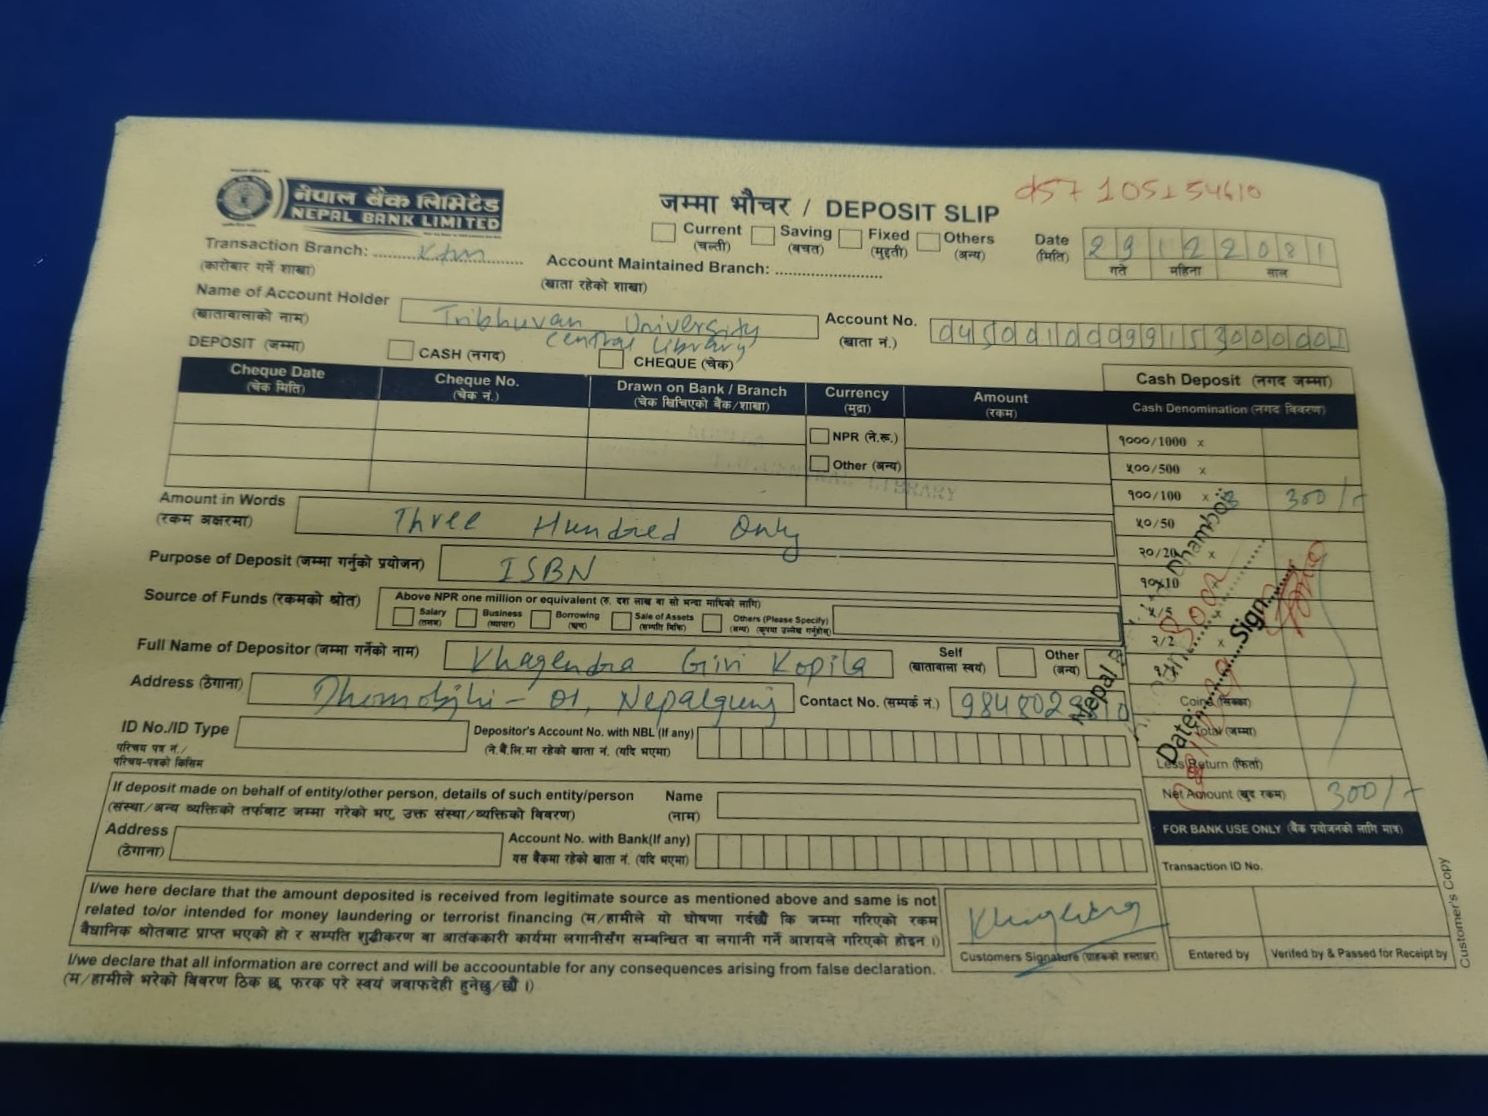 नेपाल बैंक लिमिटेड
NEPAL BANK LIMITED
जम्मा भौचर / DEPOSIT SLIP
Current (चल्ती) Saving (बचत) Fixed (मुद्दती) Others (अन्य)
Date (मिति) 29 12 2081
गते महिना साल
Transaction Branch: Ktm
(कारोबार गर्ने शाखा)
Account Maintained Branch:
(खाता रहेको शाखा)
Name of Account Holder Tribhuvan University
(खातावालाको नाम) Central Library
Account No.
(खाता नं.)
DEPOSIT (जम्मा) CASH (नगद) CHEQUE (चेक)
Cheque Date (चेक मिति) Cheque No. (चेक नं.) Drawn on Bank / Branch (चेक खिचिएको बैंक/शाखा) Currency (मुद्रा) Amount (रकम)
NPR (ने.रू.)
Other (अन्य)
Cash Deposit (नगद जम्मा)
Cash Denomination (नगद विवरण)
१०००/1000 x
५००/500 x
१००/100 x 3 300/-
५०/50
२०/20 x
१०/10
५/5
२/2 x
Coin (सिक्का)
Total (जम्मा)
Less Return (फिर्ता)
Net Amount (खुद रकम) 300/-
Amount in Words Three Hundred Only
(रकम अक्षरमा)
Purpose of Deposit (जम्मा गर्नुको प्रयोजन) ISBN
Source of Funds (रकमको श्रोत) Above NPR one million or equivalent (रु. दश लाख वा सो भन्दा माथिको लागि)
Salary (तलब) Business (व्यापार) Borrowing (ऋण) Sale of Assets (सम्पति बिक्रि) Others (Please Specify) (अन्य) (कृपया उल्लेख गर्नुहोस्)
Full Name of Depositor (जम्मा गर्नेको नाम) Khagendra Giri Kopila
Self (खातावाला स्वयं) Other (अन्य)
Address (ठेगाना) 01, Nepalgunj
Contact No. (सम्पर्क नं.)
Date Sign
ID No./ID Type
परिचय पत्र नं./
परिचय-पत्रको किसिम
Depositor's Account No. with NBL (If any)
(ने.बैं.लि.मा रहेको खाता नं. (यदि भएमा)
If deposit made on behalf of entity/other person, details of such entity/person
(संस्था/अन्य व्यक्तिको तर्फबाट जम्मा गरेको भए, उक्त संस्था/व्यक्तिको विवरण)
Name
(नाम)
Address
(ठेगाना)
Account No. with Bank(If any)
यस बैंकमा रहेको खाता नं. (यदि भएमा)
FOR BANK USE ONLY (बैंक प्रयोजनको लागि मात्र)
Transaction ID No.
Entered by Verifed by & Passed for Receipt by
I/we here declare that the amount deposited is received from legitimate source as mentioned above and same is not
related to/or intended for money laundering or terrorist financing (म/हामीले यो घोषणा गर्दछौं कि जम्मा गरिएको रकम
बैधानिक श्रोतबाट प्राप्त भएको हो र सम्पति शुद्धीकरण वा आतंककारी कार्यमा लगानीसँग सम्बन्धित वा लगानी गर्ने आशयले गरिएको होइन ।)
Customers Signature (ग्राहकको हस्ताक्षर)
I/we declare that all information are correct and will be accoountable for any consequences arising from false declaration.
(म/हामीले भरेको विवरण ठिक छ, फरक परे स्वयं जवाफदेही हुनेछु/छौं ।)
Customer's Copy